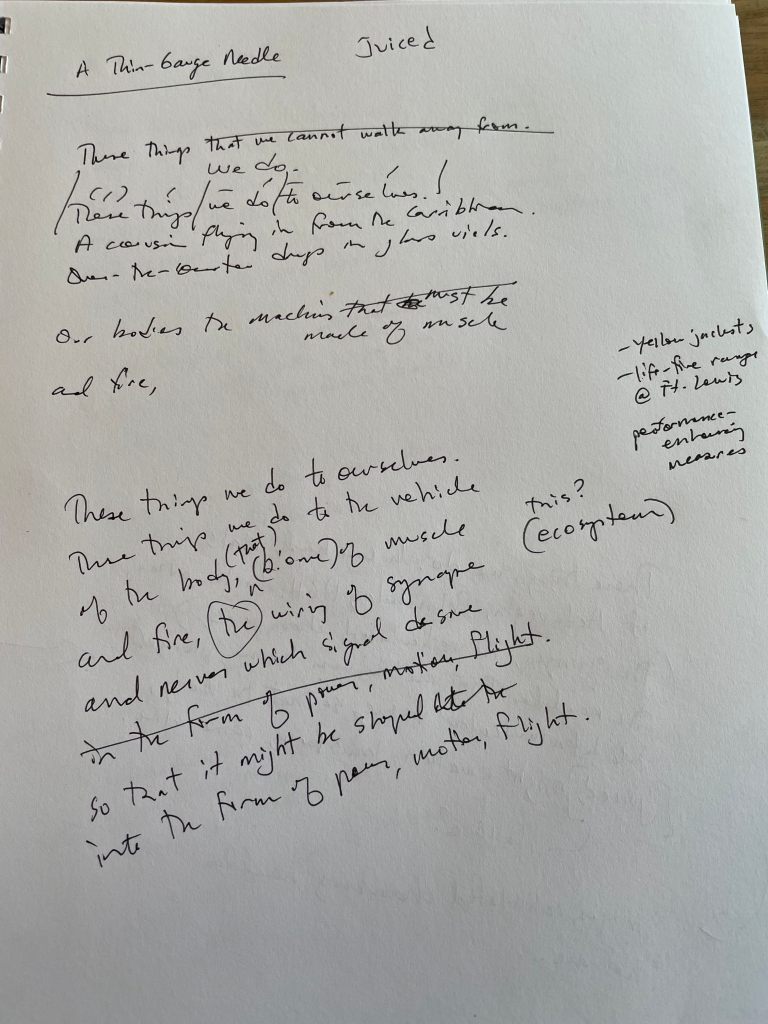 A Thin-Gauge Needle
Juiced
These things that we cannot walk away from.
we do.
These things we do to ourselves.
A cousin flying in from the Caribbean.
Over-the-counter drugs in glass vials.
Our bodies the machines that must be
made of muscle
and fire,
- Yellow jackets
- life-fire range
@ Ft. Lewis
performance-
enhancing
measures
These things we do to ourselves.
These things we do to the vehicle
this?
(that)
of the body, (biome) of muscle
(ecosystem)
and fire, the wiring of synapse
and nerves which signal desire
in the form of power, motion, flight.
so that it might be shaped
into the form of power, motion, flight.